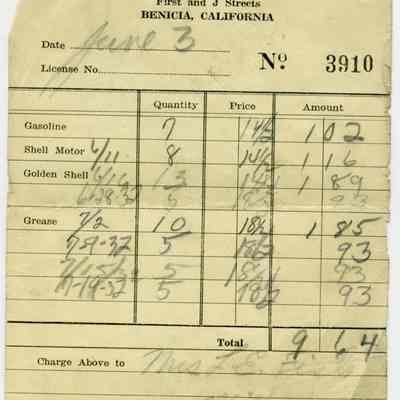 First and J Streets
BENICIA, CALIFORNIA
Date June 3
License No. Nº 3910
Quantity Price Amount
Gasoline 7 14½ 1 02
Shell Motor 6/11 8 14½ 1 16
Golden Shell 6/16 13 14½ 1 89
6-28-32 5 18½ 93
Grease 7/2 10 18½ 1 85
7-9-32 5 18½ 93
7/15/32 5 18½ 93
7-19-32 5 18½ 93
Total 9 64
Charge Above to Mrs L. E.